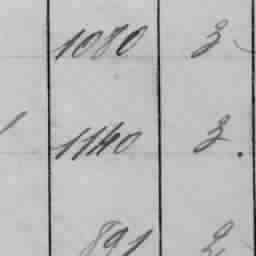 1080 3
1140 3.
891 2